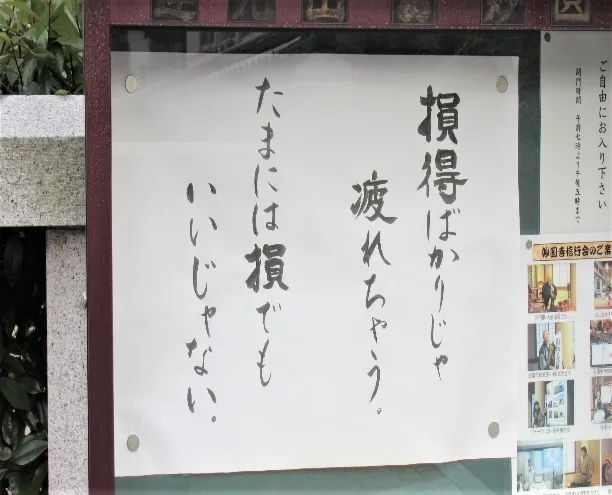 損得ばかりじゃ
疲れちゃう。
たまには損でも
いいじゃない。
ご自由にお入り下さい
開門時間 午前七時より午後五時まで